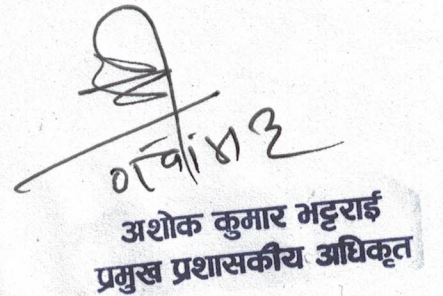 अशोक कुमार भट्टराई
प्रमुख प्रशासकीय अधिकृत